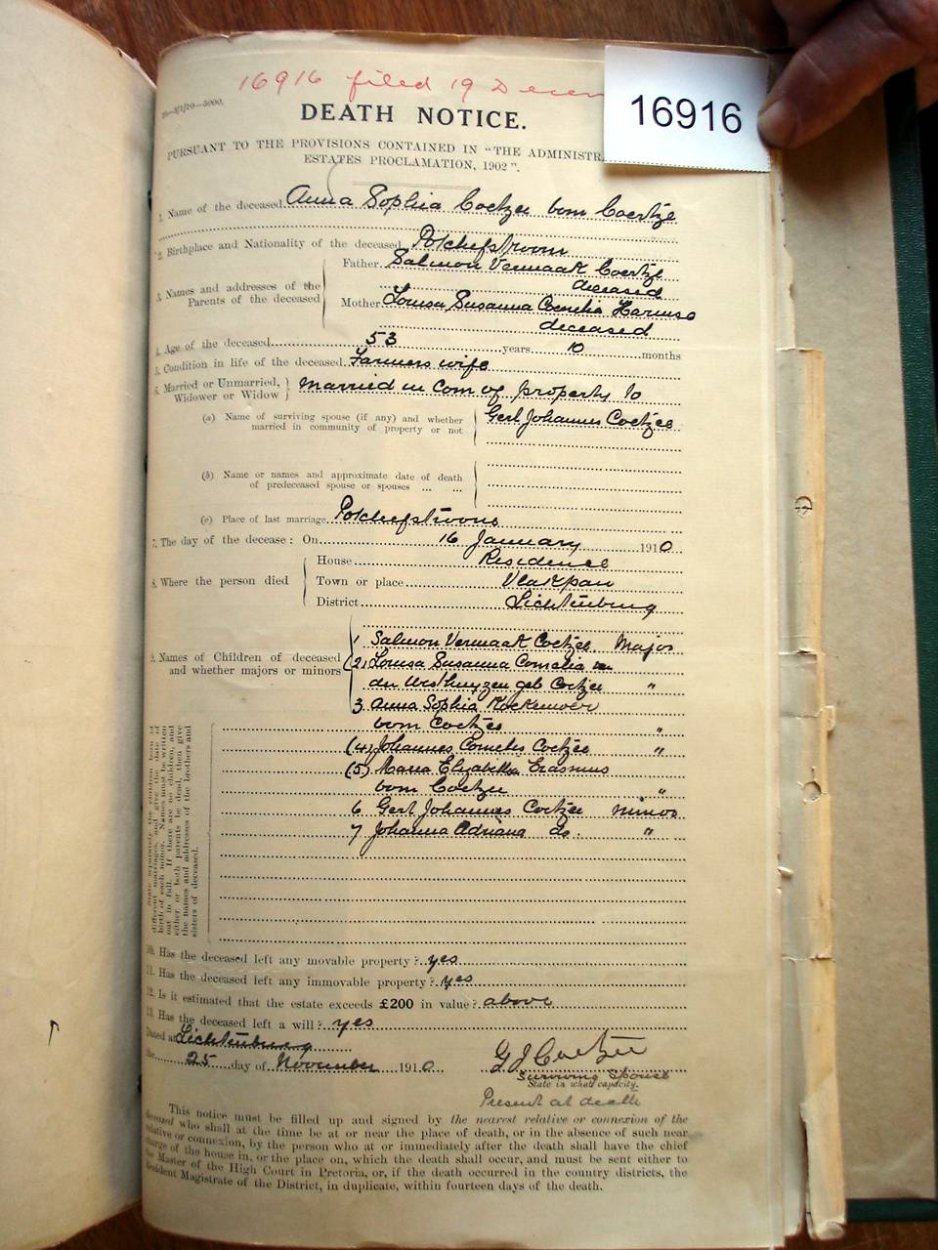 16916 filed 19 Decem
16916
DEATH NOTICE.
PURSUANT TO THE PROVISIONS CONTAINED IN "THE ADMINISTR
ESTATES PROCLAMATION, 1902".
1. Name of the deceased Anna Sophia Coetzee born Coertze
2. Birthplace and Nationality of the deceased Potchefstroom
3. Names and addresses of the Parents of the deceased
Father Salmon Vermaak Coertze
deceased
Mother Louisa Susanna Cornelia Harmse
deceased
4. Age of the deceased 53 years 10 months
5. Condition in life of the deceased Farmers wife
6. Married or Unmarried, Widower or Widow Married in Com of property to
(a) Name of surviving spouse (if any) and whether married in community of property or not Gert Johannes Coetzee
(b) Name or names and approximate date of death
of predeceased spouse or spouses ... ...
(c) Place of last marriage Potchefstroom
7. The day of the decease: On 16 January 1910
8. Where the person died
House Residence
Town or place Vlakpan
District Lichtenburg
9. Names of Children of deceased
and whether majors or minors
1 Salmon Vermaak Coetzee Major
(2) Louisa Susanna Cornelia van
der Westhuyzen geb Coetzee "
3 Anna Sophia Kockemoer
born Coetzee "
(4) Johannes Cornelis Coetzee "
(5) Maria Elizabetha Erasmus
born Coetzee "
6 Gert Johannes Coetzee minor
7 Johanna Adriana do. "
State separately the children born of
different marriages, and give the date of
birth of each minor. Names must be written
out in full. If there are no children, and
either or both parents be dead, then give
the names and addresses of the brothers and
sisters of deceased.
10. Has the deceased left any movable property? yes
11. Has the deceased left any immovable property? yes
12. Is it estimated that the estate exceeds £200 in value? above
13. Has the deceased left a will? yes
Dated at Lichtenburg
the 25 day of November 1910
G J Coetzee
Surviving Spouse
State in what capacity.
Present at death
This notice must be filled up and signed by the nearest relative or connexion of the
deceased who shall at the time be at or near the place of death, or in the absence of such near
relative or connexion, by the person who at or immediately after the death shall have the chief
charge of the house in, or the place on, which the death shall occur, and must be sent either to
the Master of the High Court in Pretoria, or, if the death occurred in the country districts, the
Resident Magistrate of the District, in duplicate, within fourteen days of the death.